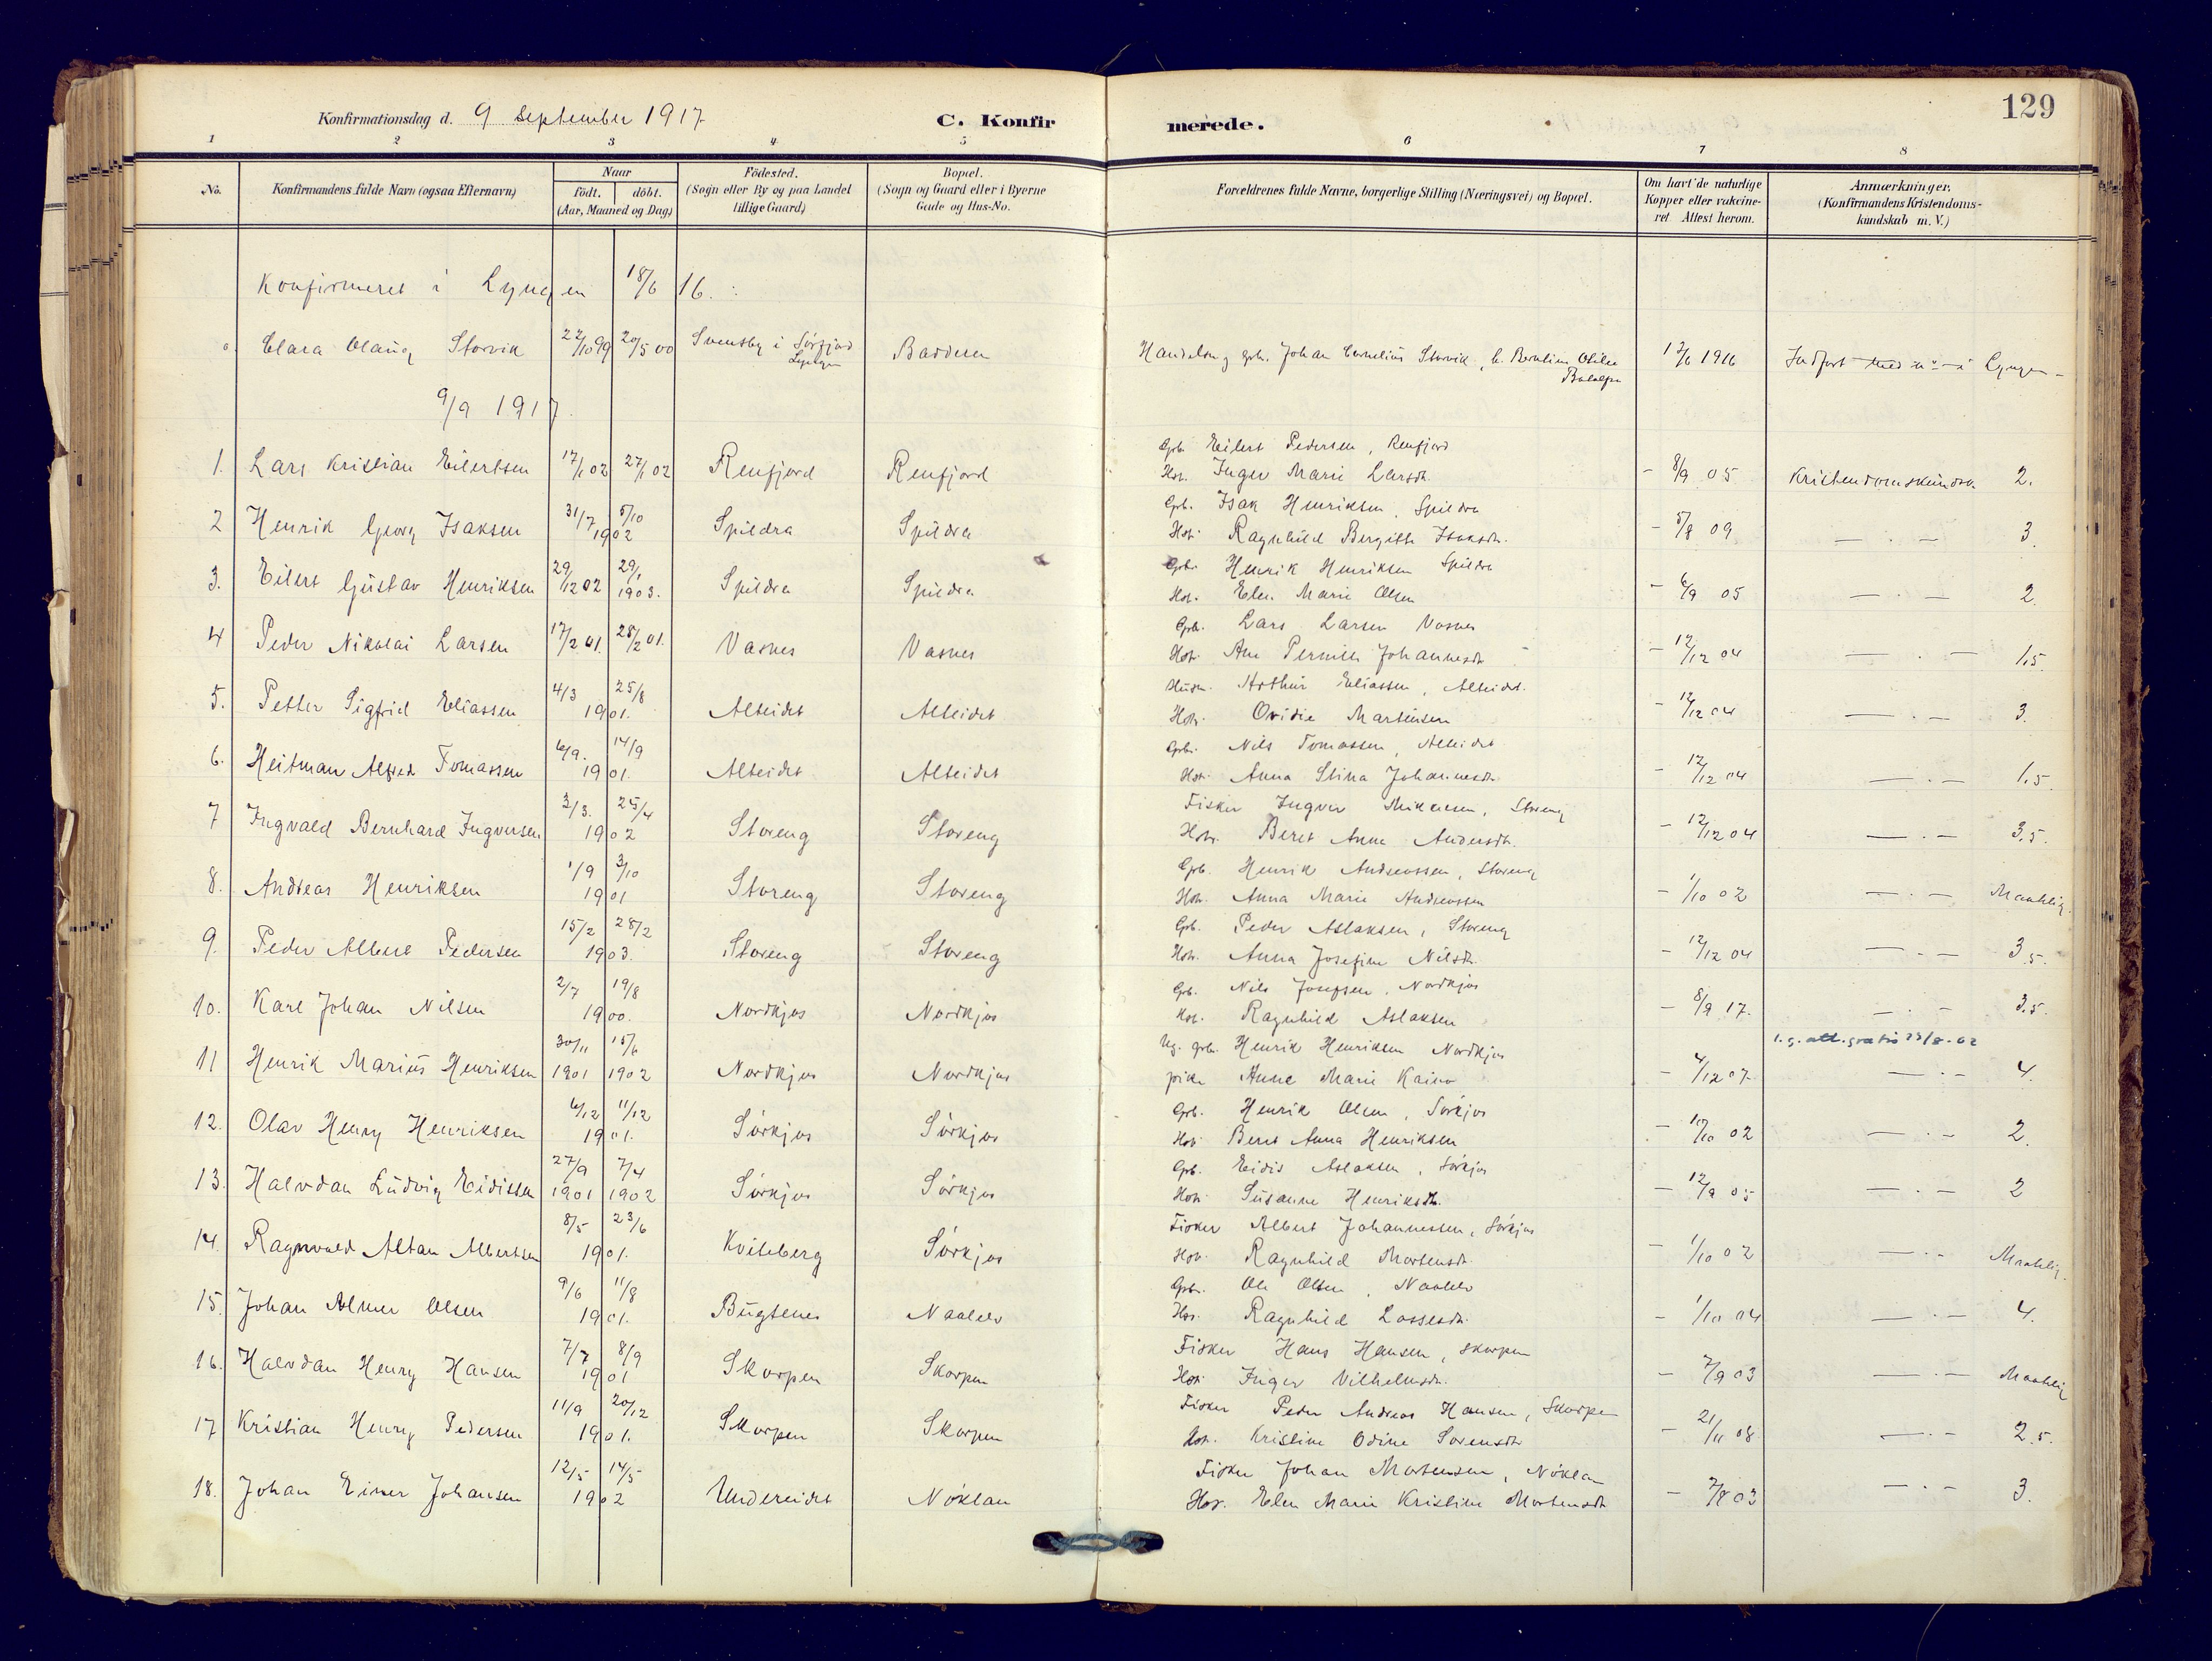 129
Konfirmationsdag d. 9 September 1917
C. Konfirmerede.
1 2 3 4 5 6 7 8
No.
Konfirmandens fulde Navn (ogsaa Efternavn)
Naar
födt. döbt.
(Aar, Maaned og Dag)
Födested.
(Sogn eller By og paa Landet
tillige Gaard)
Bopæl.
(Sogn og Gaard eller i Byerne
Gade og Hus-No.
Forældrenes fulde Navne, borgerlige Stilling (Næringsvei) og Bopæl.
Om havt de naturlige
Kopper eller vakcine-
ret Attest herom.
Anmærkninger.
(Konfirmandens Kristendoms-
kundskab m. V.)
Konfirmeret i Lyngen 18/6 16.
Clara Olaug Storvik 22/10 99 20/5 00 Svensby i Sörfjord Badderen Johan Cornelius Storvik, 12/6 1916 Indført i Lyngen
Lyngen
9/9 1917.
Grb. Eilert Pedersen, Renfjord
1. Lars Kristian Eilertsen 17/1 02 27/1 02 Renfjord Renfjord Hos. Inger Marie Larsdtr. - 8/9 05 Kristendomskundsk. 2.
Grb. Isak Henriksen, Spildra
2 Henrik Georg Isaksen 31/7 5/10 1902 Spildra Spildra Hos. Ragnhild Bergitte Isaksdtr. - 5/8 09 — · — 3.
Grb. Henrik Henriksen Spildra
3. Eilert Gustav Henriksen 29/12 02 29/1 1903. Spildra Spildra Hos. Elen Marie Olsen - 6/9 05 — · — 2.
Grb. Lars Larsen Vasnes
4 Peder Nikolai Larsen 17/2 01. 28/2 01. Vasnes Vasnes Hos. Ane Pernille Johannesdtr - 12/12 04 — · — 1,5.
Husm. Arthur Eliassen, Alteidet.
5. Petter Sigfrid Eliassen 4/3 25/8 1901. Alteidet Alteidet Hos. Ovidie Martinsen - 12/12 04 — · — 3.
Grb. Nils Tomassen, Alteidet
6. Heitman Alfred Tomassen 6/9. 14/9 1901. Alteidet Alteidet Hos. Anna Stina Johannesdtr. - 12/12 04 — · — 1,5.
Fisker Ingver Mikkelsen, Storeng
7 Ingvald Bernhard Ingversen 2/3. 25/4 1902 Storeng Storeng Hos. Beret Anna Andersdtr. - 12/12 04 — · — 3,5.
Grb. Henrik Andreassen, Storeng
8. Andreas Henriksen 1/9 3/10 1901 Storeng Storeng Hos. Anna Marie Andreassen - 1/10 02 — · — Maatelig.
Grb. Peder Aslaksen, Storeng
9. Peder Albert Pedersen 15/2 28/2 1903. Storeng Storeng Hos. Anna Josefine Nilsdtr. - 12/12 04 — · — 3,5.
Grb. Nils Josefsen, Nordkjos
10. Karl Johan Nilsen 2/7 19/8 1900. Nordkjos Nordkjos Hos. Ragnhild Aslaksen - 8/9 17. — · — 3,5.
Ug. grb. Henrik Henriksen Nordkjos 1.g. att. gratis 23/8-62
11 Henrik Marius Henriksen 30/11 1901 15/6 1902 Nordkjos Nordkjos pike Anne Marie Kaino - 4/12 07. — · — 4.
Grb. Henrik Olsen, Sörkjos
12. Olav Henry Henriksen 6/12 11/12 1901. Sörkjos Sörkjos Hos. Beret Anna Henriksen - 10/10 02 — · — 2.
Grb. Eidis Aslaksen, Sörkjos
13. Halvdan Ludvig Eidissen 27/9 1901 7/4 1902 Sörkjos Sörkjos Hos. Susanne Henriksdtr. - 12/9 05 — · — 2
Fisker Albert Johannessen, Sörkjos
14 Ragnvald Altan Albertsen 8/5 23/6 1901. Kviteberg Sörkjos Hos. Ragnhild Mortensdtr. - 1/10 02 — · — Maatelig.
Grb. Ole Olsen, Naalelv
15. Johan Almer Olsen 9/6 11/8 1901. Bugtenes Naalelv Hos. Ragnhild Lassesdtr. - 1/10 04 — · — 4.
Fisker Hans Hansen, Skorpen
16. Halvdan Henry Hansen 7/7 8/9 1901 Skorpen Skorpen Hos. Inger Vilhelmsdtr. - 7/9 03 — · — Maatelig
Fisker Peder Andreas Hansen, Skorpen
17 Kristian Henry Pedersen 11/9 20/12 1901. Skorpen Skorpen Hos. Kristine Odine Sorensdtr - 21/11 08. — · — 2,5.
Fisker Johan Mortensen, Nöklan
18. Johan Einer Johansen 12/5 14/5 1902 Undereidet Nöklan Hos. Elen Marie Kristine Mortensdtr - 7/8 03 — · — 3.